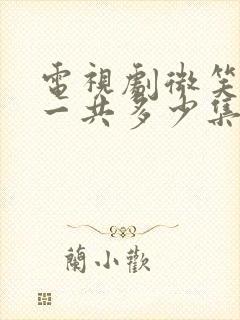 電視劇微笑
一共多少集
蘭小歡